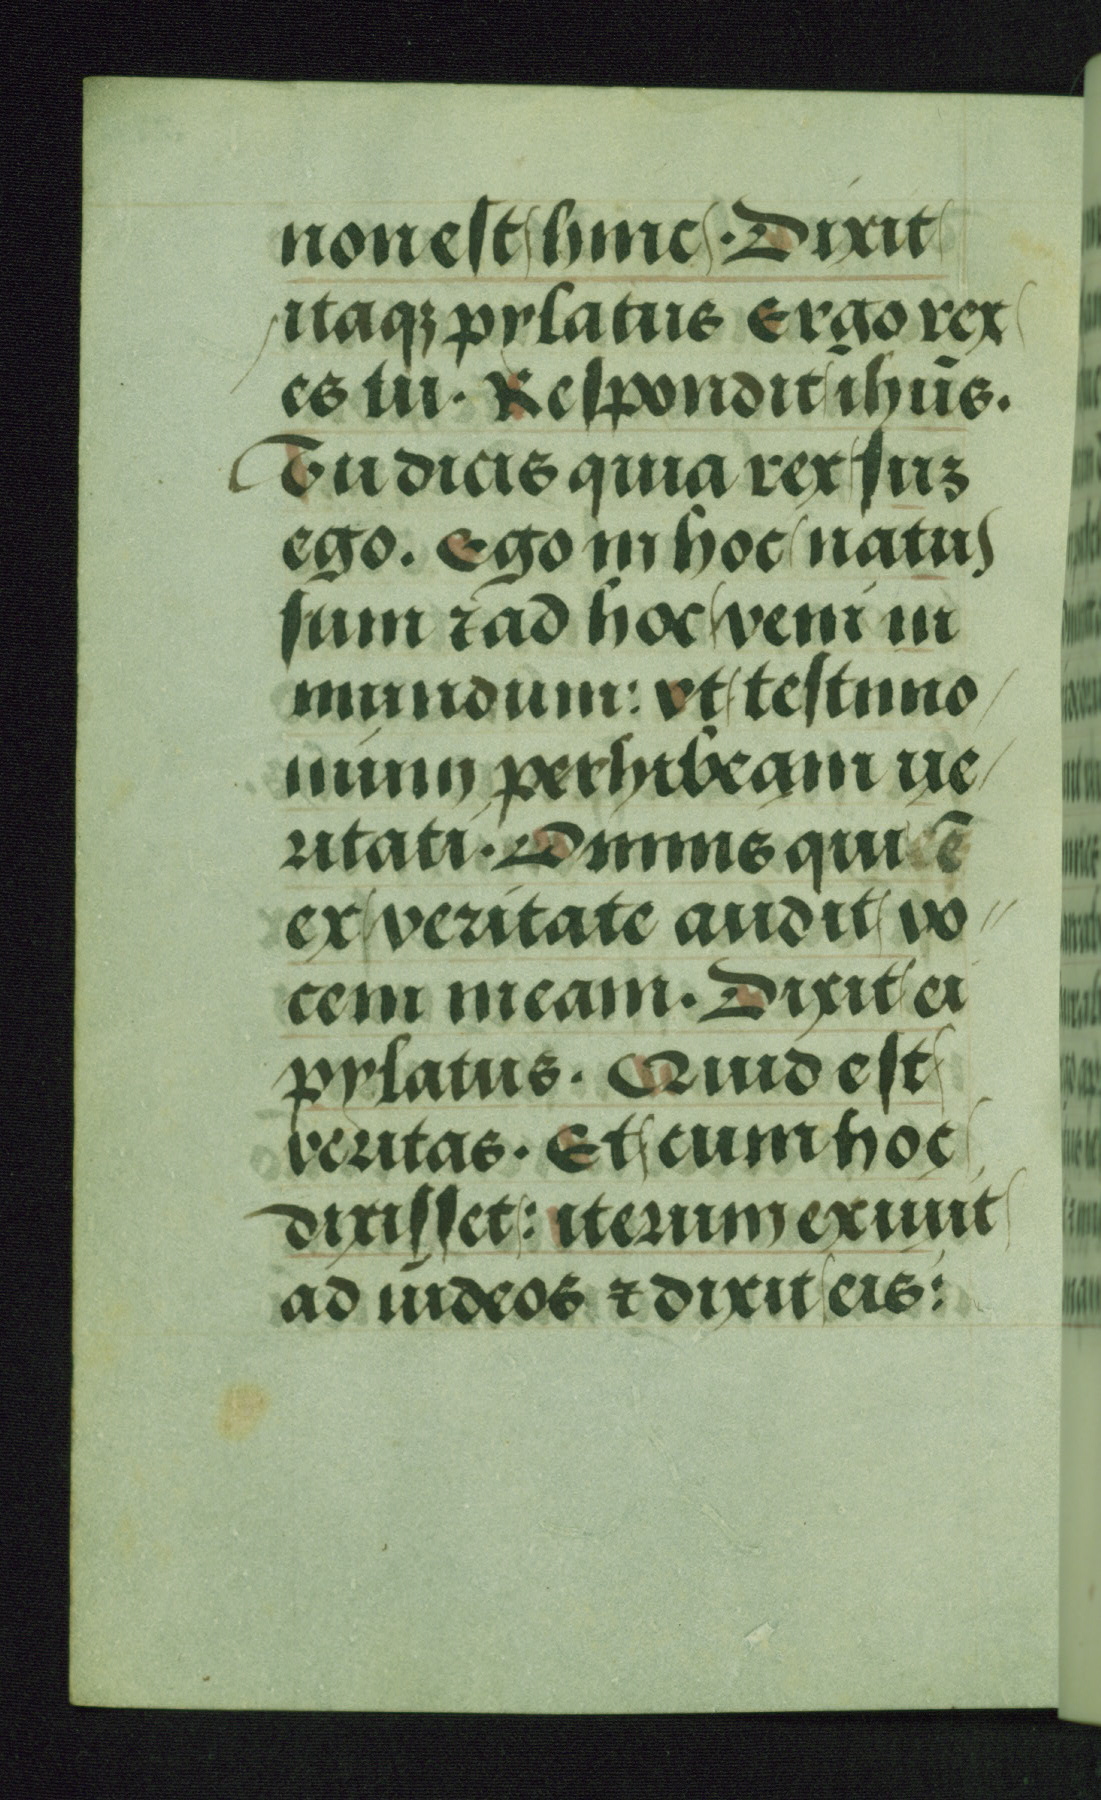 non est hinc. Dixit
itaqꝫ pylatus Ergo rex
es tu. Respondit ihūs.
Tu dicis quia rex suꝫ
ego. Ego in hoc natus
sum ⁊ ad hoc veni in
mundum: vt testimo
nium perhibeam ue
ritati. Omnis qui ē
ex veritate audit vo
cem meam. Dixit ei
pylatus. Quid est
veritas. Et cum hoc
dixisset: iterum exiuit
ad iudeos ⁊ dixit eis: